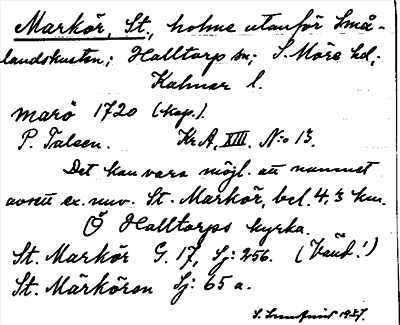 Markör, St., holme utanför Små-
landskusten; Halltorp sn; S. Möre hd;
Kalmar l.
marö 1720 (kop.).
P. Talsen. Kr.A. XIII. No 13.
Det kan vara möjl. att namnet
avsett ex. nuv. St. Markör, bel. 4.3 km.
Ö Halltorps kyrka.
St. Markör G. 17, Sj: 256. (Vänd!)
St. Märkören Sj: 65 a.
S. 1927.